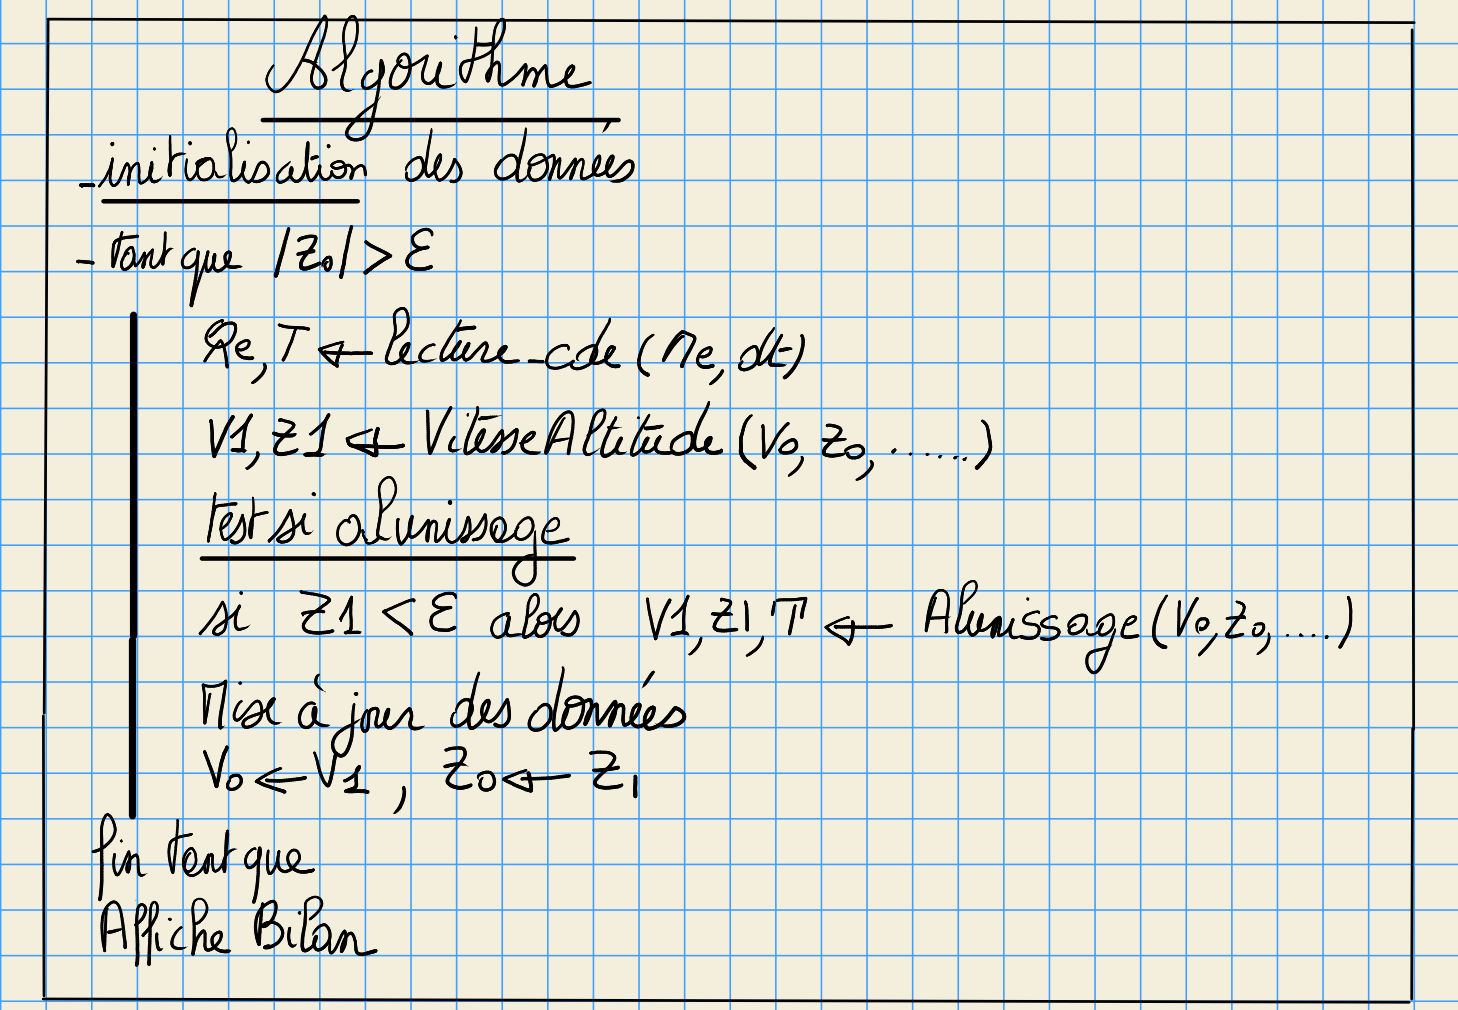 Algorithme
- initialisation des données
- tant que |Z0| > ε
Re, T ← lecture_cde (Me, dt)
V1, Z1 ← VitesseAltitude (V0, Z0, ......)
test si alunissage
si Z1 < ε alors V1, Z1, T ← Alunissage (V0, Z0, ....)
Mise à jour des données
V0 ← V1 , Z0 ← Z1
fin tant que
Affiche Bilan